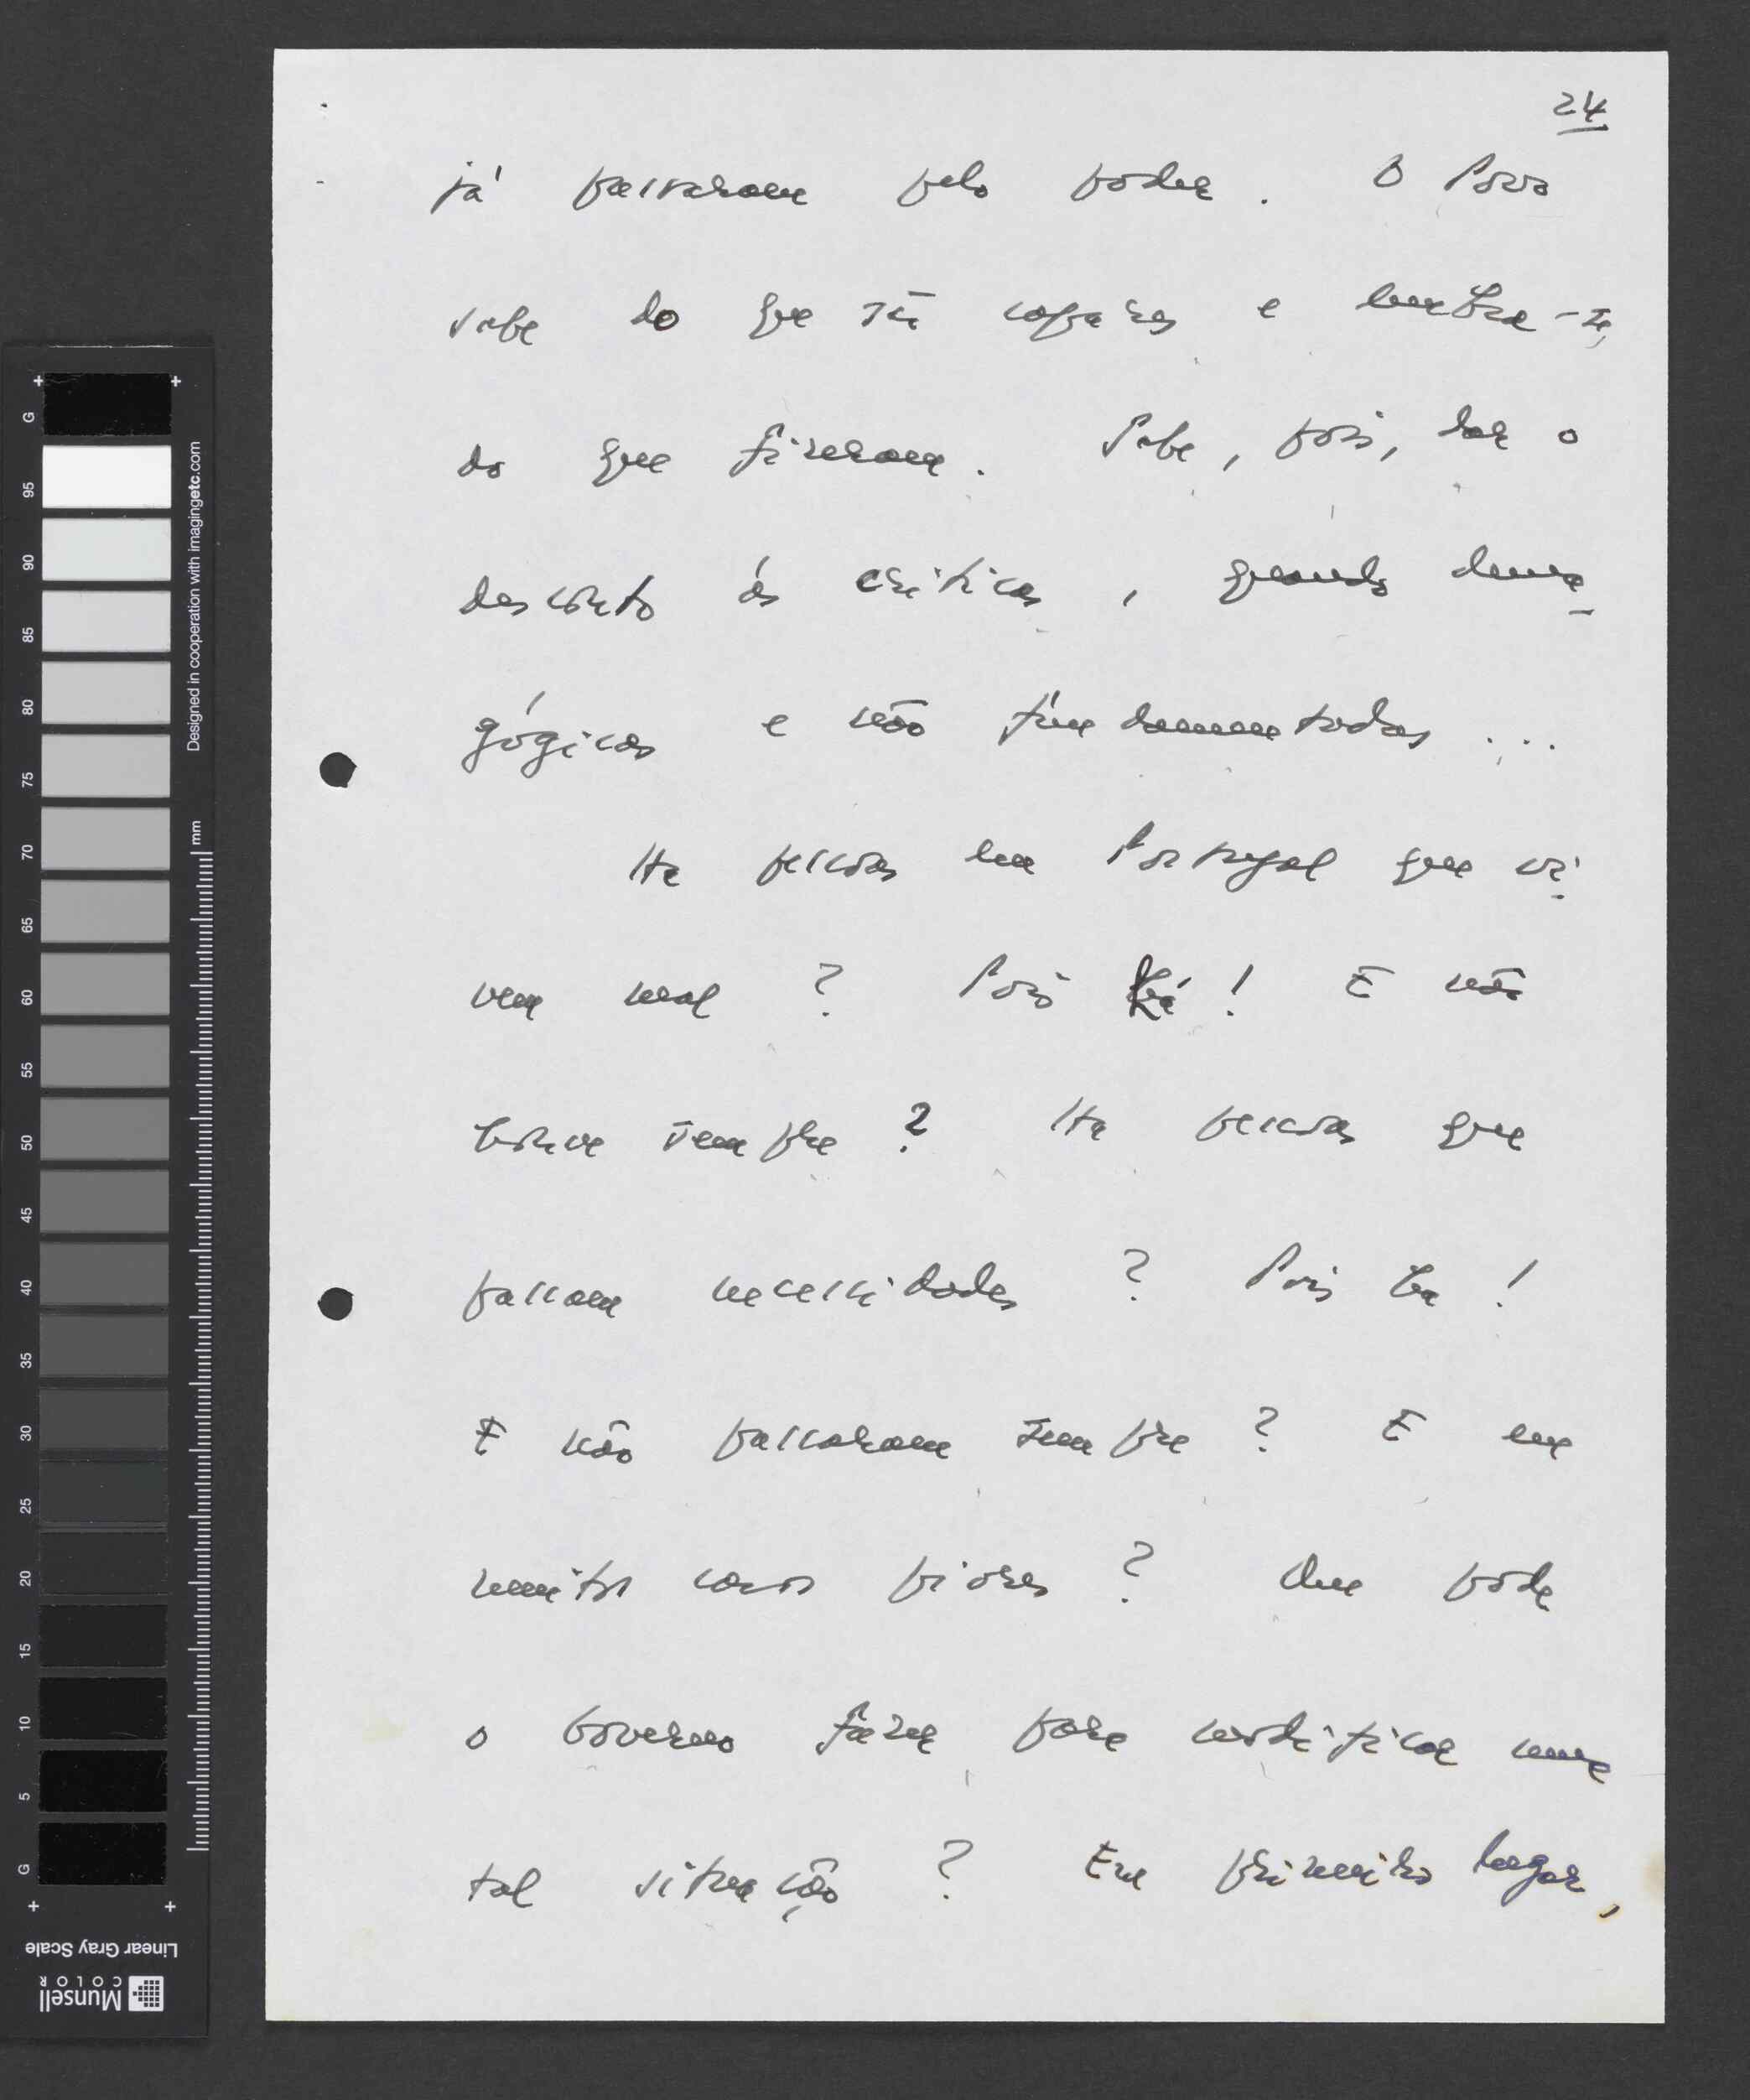 24
já passaram pelo poder. O Povo
sabe do que são capazes e lembra-se,
do que fizeram. Sabe, pois, dar o
desconto às críticas, quando dema-
gógicas e não fundamentadas...
Há pessoas em Portugal que vi-
vem mal? Pois há! E não
houve sempre? Há pessoas que
passam necessidades? Pois há!
E não passaram sempre? E em
muitos casos piores? Que pode
o Governo fazer para modificar uma
tal situação? Em primeiro lugar,
G
95
90
85
80
75
70
65
60
55
50
45
40
35
30
25
20
15
10
5
G
mm
Designed in cooperation with imagingetc.com
Linear Gray Scale
Munsell
COLOR